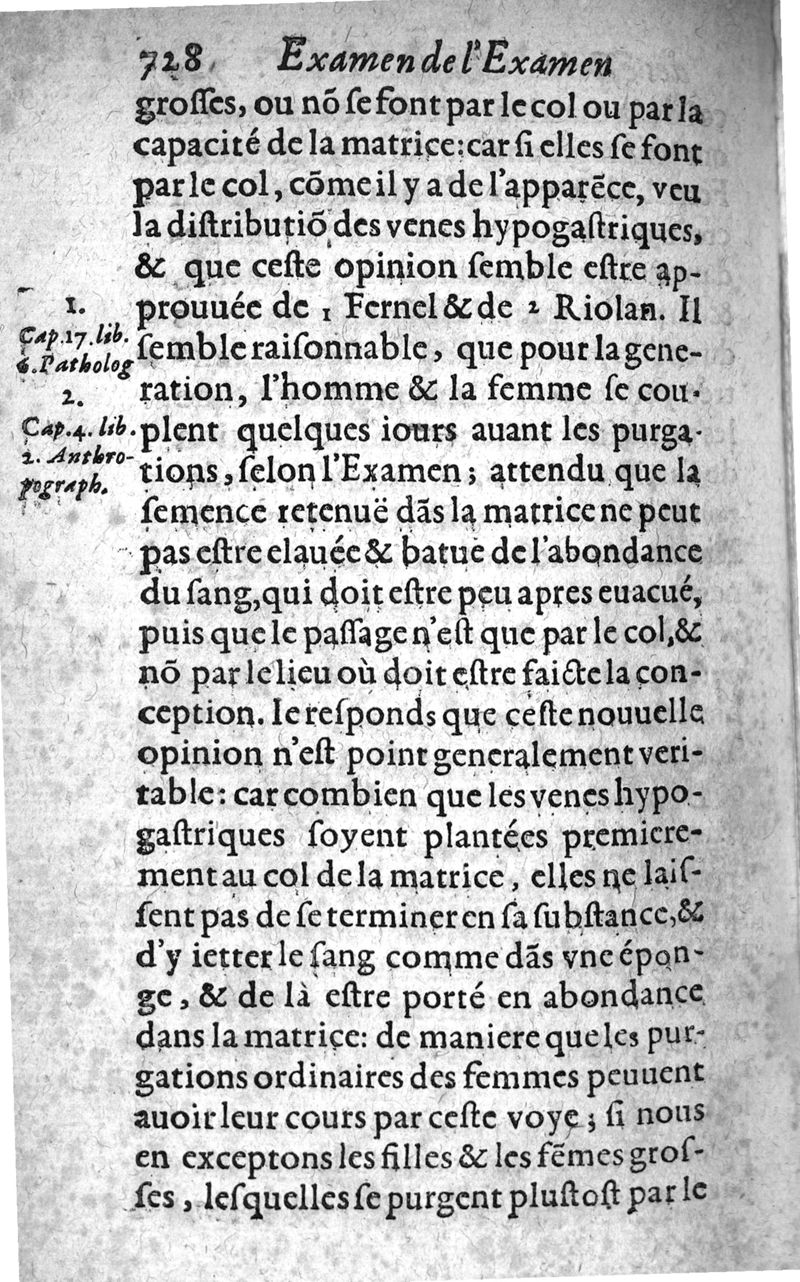 728 Examen de l'Examen
groſſes, ou nõ ſe font par le col ou par la
capacité de la matrice: car ſi elles ſe font
par le col, cõme il y a de l'apparẽce, veu
la diſtributiõ des venes hypogaſtriques,
& que ceſte opinion ſemble eſtre ap-
prouuée de 1 Fernel & de 2 Riolan. Il
ſemble raiſonnable, que pour la gene-
ration, l'homme & la femme ſe cou-
plent quelques iours auant les purga-
tions, ſelon l'Examen; attendu que la
ſemence retenuë dãs la matrice ne peut
pas eſtre elauée & batue de l'abondance
du ſang, qui doit eſtre peu apres euacué,
puis que le paſſage n'eſt que par le col, &
nõ par le lieu où doit eſtre faicte la con-
ception. Ie reſponds que céſte nouuelle
opinion n'eſt point generalement veri-
table: car combien que les venes hypo-
gaſtriques ſoyent plantées premiere-
ment au col de la matrice, elles ne laiſ-
ſent pas de ſe terminer en ſa ſubſtance, &
d'y ietter le ſang comme dãs vne épon-
ge, & de là eſtre porté en abondance
dans la matrice: de maniere que les pur-
gations ordinaires des femmes peuuent
auoir leur cours par ceſte voye; ſi nous
en exceptons les filles & les fẽmes groſ-
ſes, leſquelles ſe purgent pluſtoſt par le
1.
Cap.17.lib.
6.Patholog
2.
Cap.4.lib.
2. Anthro-
pograph.